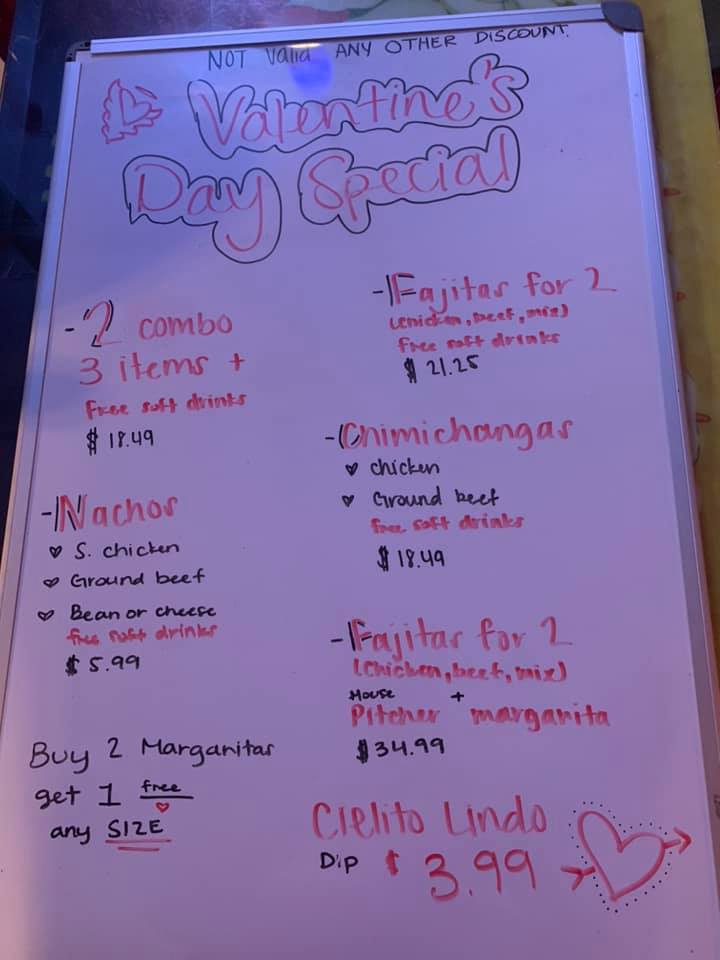 NOT Valid ANY OTHER DISCOUNT.
Valentine's
Day Special
- 2 combo
3 items +
Free soft drinks
$ 18.49
- Nachos
S. chicken
Ground beef
Bean or cheese
free soft drinks
$ 5.99
Buy 2 Margaritas
get 1 free
any SIZE
- Fajitas for 2
(chicken, beef, mix)
free soft drinks
$ 21.25
- Chimichangas
chicken
Ground beef
free soft drinks
$ 18.49
- Fajitas for 2
(chicken, beef, mix)
House +
Pitcher margarita
$ 34.99
Cielito Lindo
Dip $ 3.99